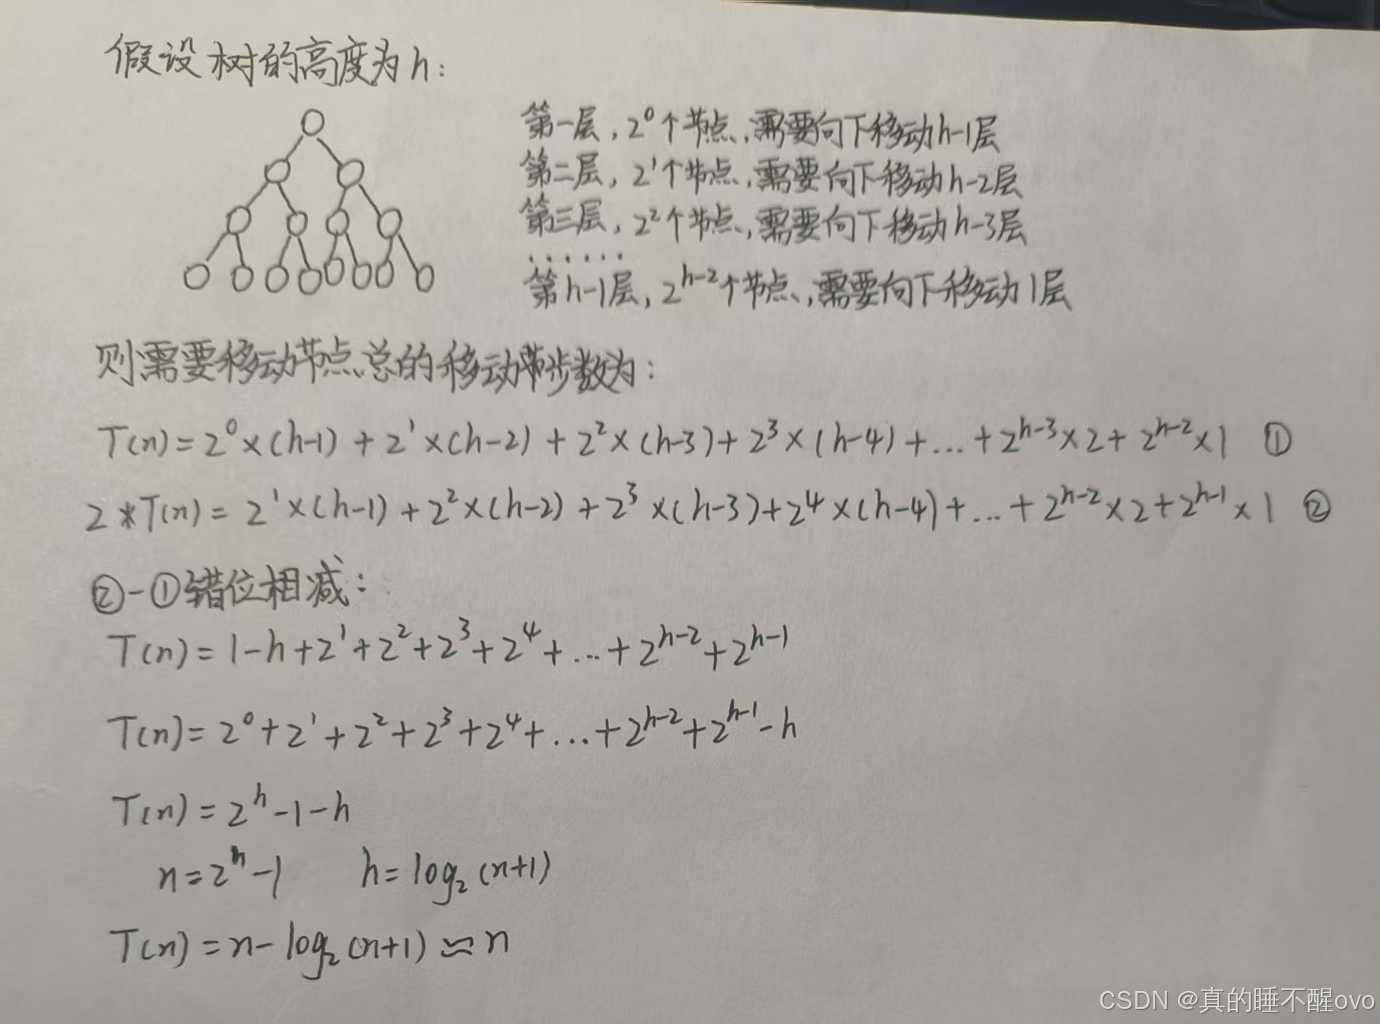 假设树的高度为h：
第一层，2⁰个节点，需要向下移动h-1层
第二层，2¹个节点，需要向下移动h-2层
第三层，2²个节点，需要向下移动h-3层
......
第h-1层，2ʰ⁻²个节点，需要向下移动1层
则需要移动节点总的移动步数为：
T(n)=2⁰×(h-1)+2¹×(h-2)+2²×(h-3)+2³×(h-4)+...+2ʰ⁻³×2+2ʰ⁻²×1 ①
2*T(n)=2¹×(h-1)+2²×(h-2)+2³×(h-3)+2⁴×(h-4)+...+2ʰ⁻²×2+2ʰ⁻¹×1 ②
②-①错位相减：
T(n)=1-h+2¹+2²+2³+2⁴+...+2ʰ⁻²+2ʰ⁻¹
T(n)=2⁰+2¹+2²+2³+2⁴+...+2ʰ⁻²+2ʰ⁻¹-h
T(n)=2ʰ-1-h
n=2ʰ-1 h=log₂(n+1)
T(n)=n-log₂(n+1)≈n
CSDN @真的睡不醒ovo